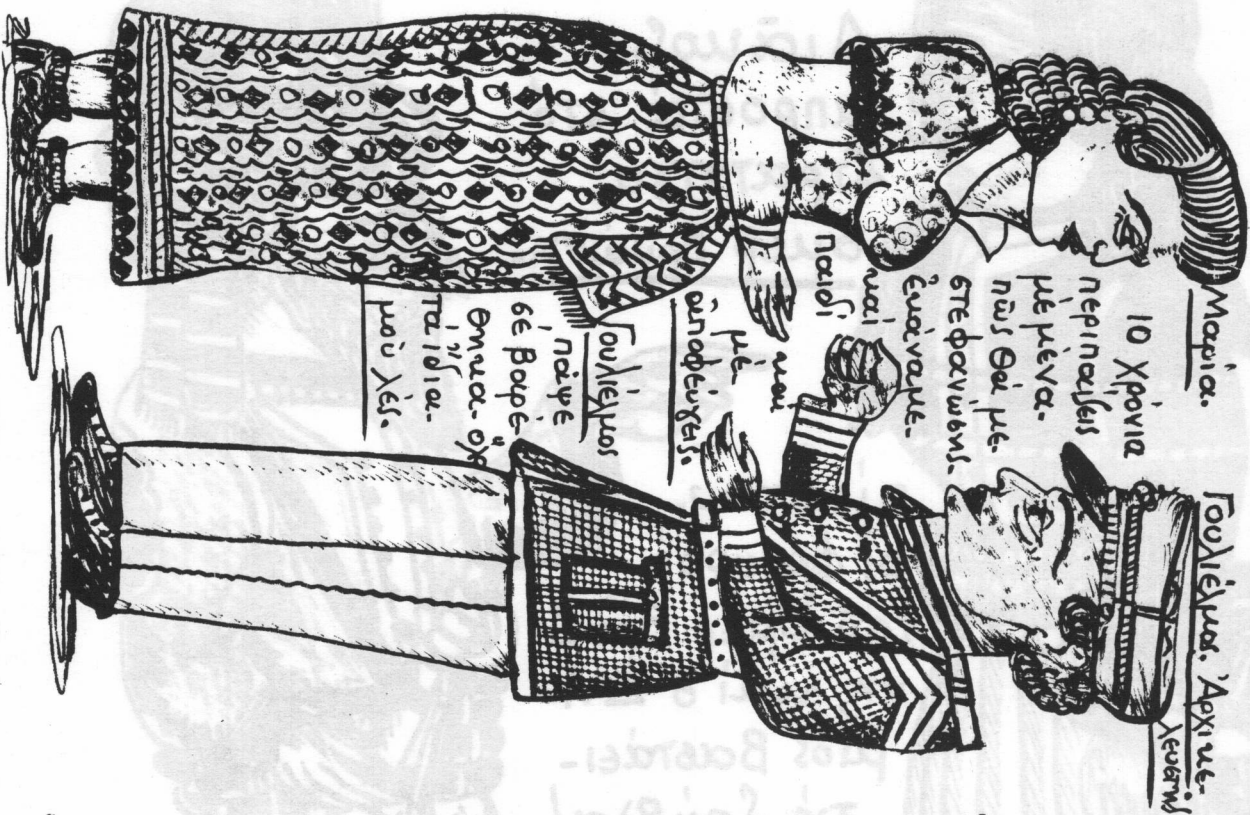 Μαρία.
10 χρόνια
περιπαιζεις
μὲ μένα.
πῶς θά με
στεφανώσης.
ἐκάναμε.
καί
παιδί
καί
μὲ
ἀποφεύγεις.
Γουλιέλμος
πάψε
σέ βαρέ-
θηκα. ὄχι
τά ἴδια.
μοῦ χές.
Γουλιέλμος. Ἀρχικε-
λευστής